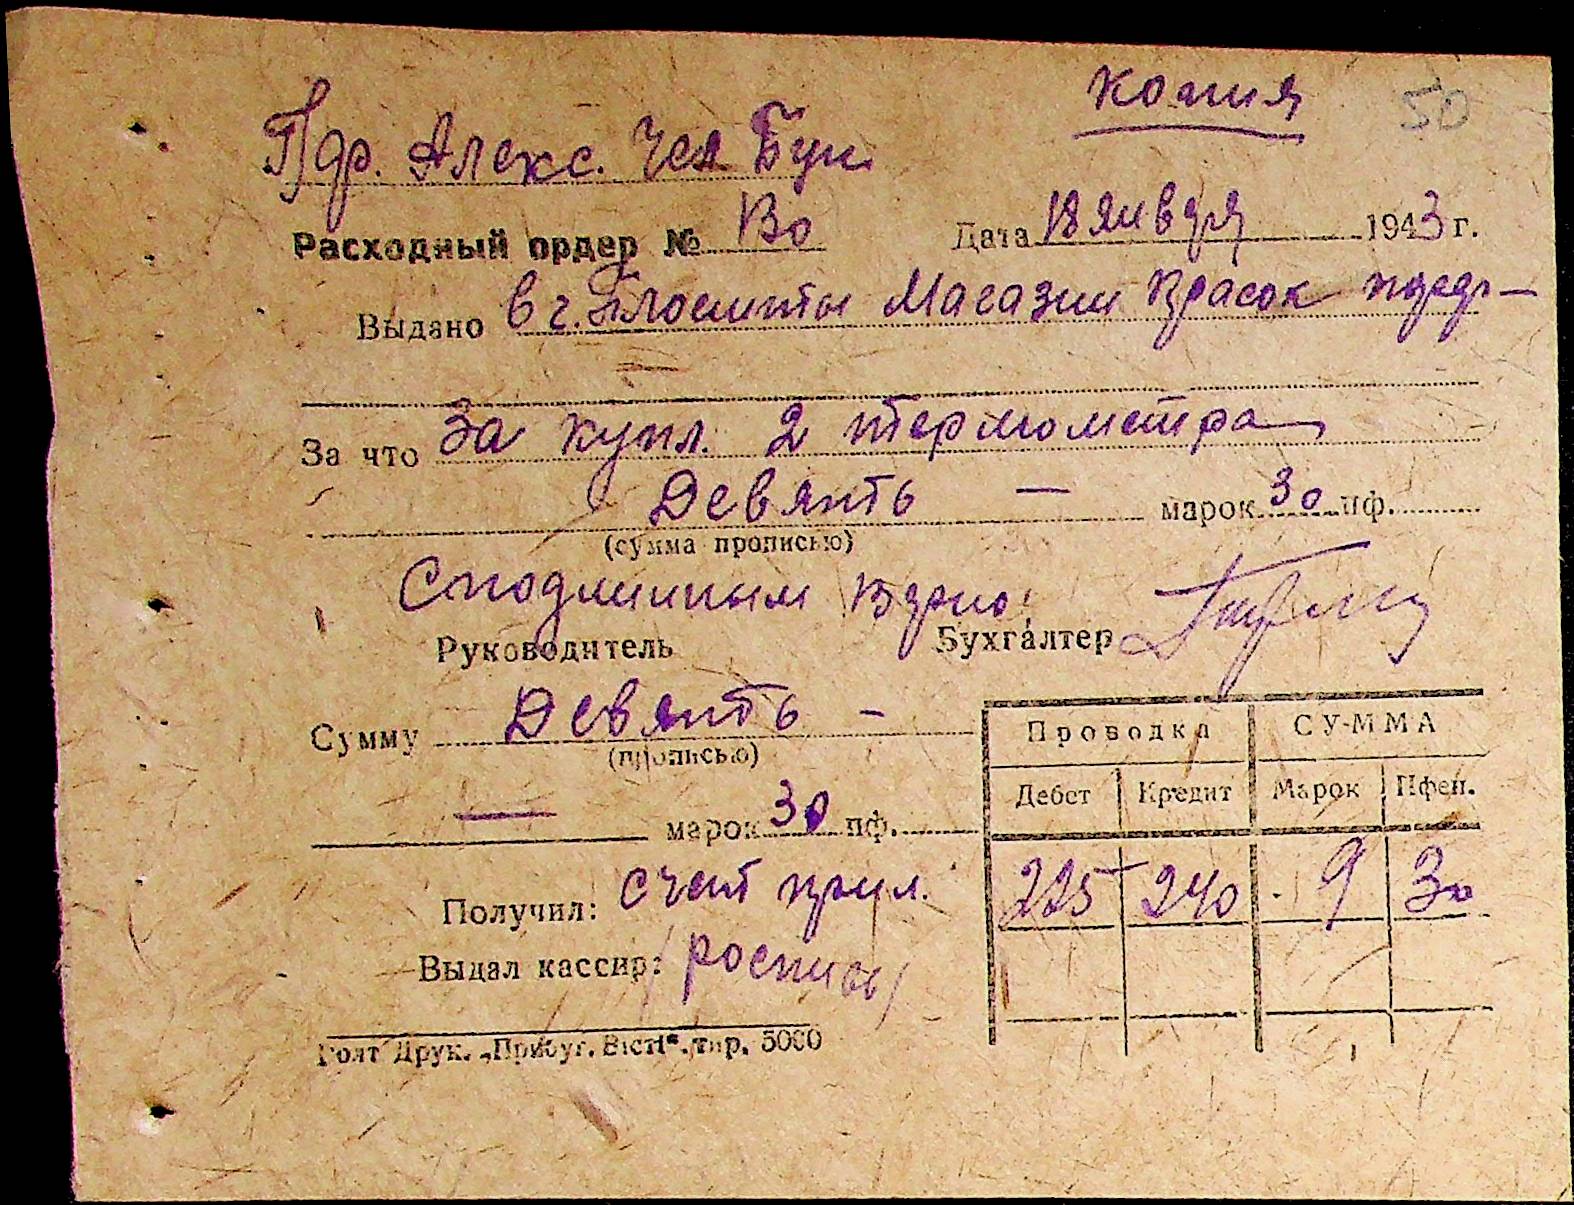 Копия 50
Пдр. Алекс.
Расходный ордер № Во Дата 18 января 1943 г.
Выдано в г. Магазин Красок
За что За купл. 2 термометра
Девять — марок 30 пф.
(сумма прописью)
С подлинным верно:
Руководитель Бухгалтер
Сумму Девять —
(прописью)
— марок 30 пф.
Проводка СУММА
Дебет Кредит Марок Пфен.
225 240 9 30
Получил: счет прил.
Выдал кассир: /роспись/
Голт Друк. „Прибуг. Вісті“. тир. 5000